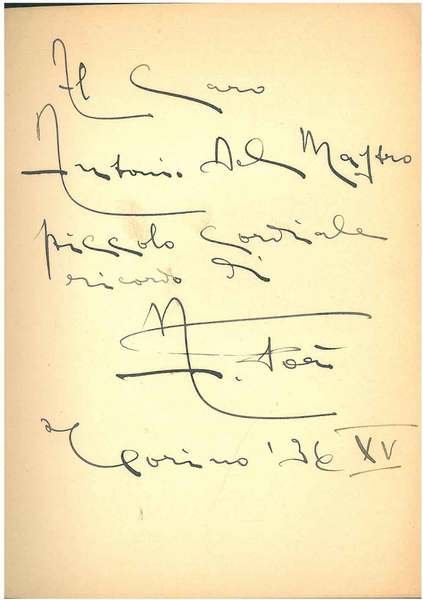 Al Caro
Antonio Del Mastro
piccolo cordiale
ricordo di
Torino '36 XV